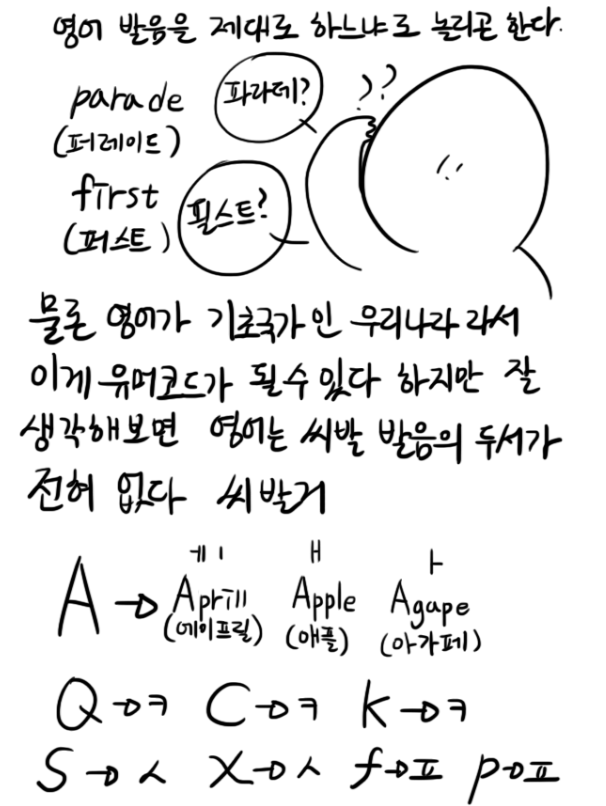 영어 발음을 제대로 하느냐로 놀리곤 한다.
parade
(퍼레이드)
파라데?
??
first
(퍼스트)
필스트?
물론 영어가 기초국가인 우리나라라서
이게 유머코드가 될수있다 하지만 잘
생각해보면 영어는 씨발 발음의 두서가
전혀 없다 씨발거
ㅔㅣ ㅐ ㅏ
A → Aprill Apple Agape
(에이프릴) (애플) (아가페)
Q→ㅋ C→ㅋ K→ㅋ
S→ㅅ X→ㅅ f→ㅍ p→ㅍ